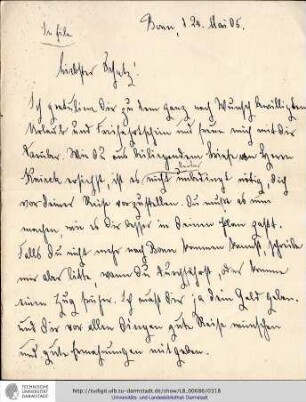 In Eile
Bonn, d. 20. Mai 05.
Liebster Schatz!
Ich gratuliere Dir zu dem ganz nach Wunsch bewilligten
Urlaub und Freifahrtschein und freue mich mit Dir
darüber. Wie Du aus beiliegendem Briefe Herrn
ersiehst, ist es nicht unbedingt nötig, Dich
vor Deiner Reise vorzustellen. Du mußt es nun
machen wie es Dir besser in Deinen Plan paßt.
Falls Du nicht mehr nach Bonn kommen kannst, schreibe
mir aber bitte, wann Du durchfährst, oder komme
einen Zug früher. Ich muß Dir ja dein Geld geben.
und Dir vor allen Dingen gute Reise wünschen
und gute Ermahnungen mitgeben.
TECHNISCHE
UNIVERSITÄT
DARMSTADT
http://tudigit.ulb.tu-darmstadt.de/show/LB_00686/0318
Universitäts- und Landesbibliothek Darmstadt